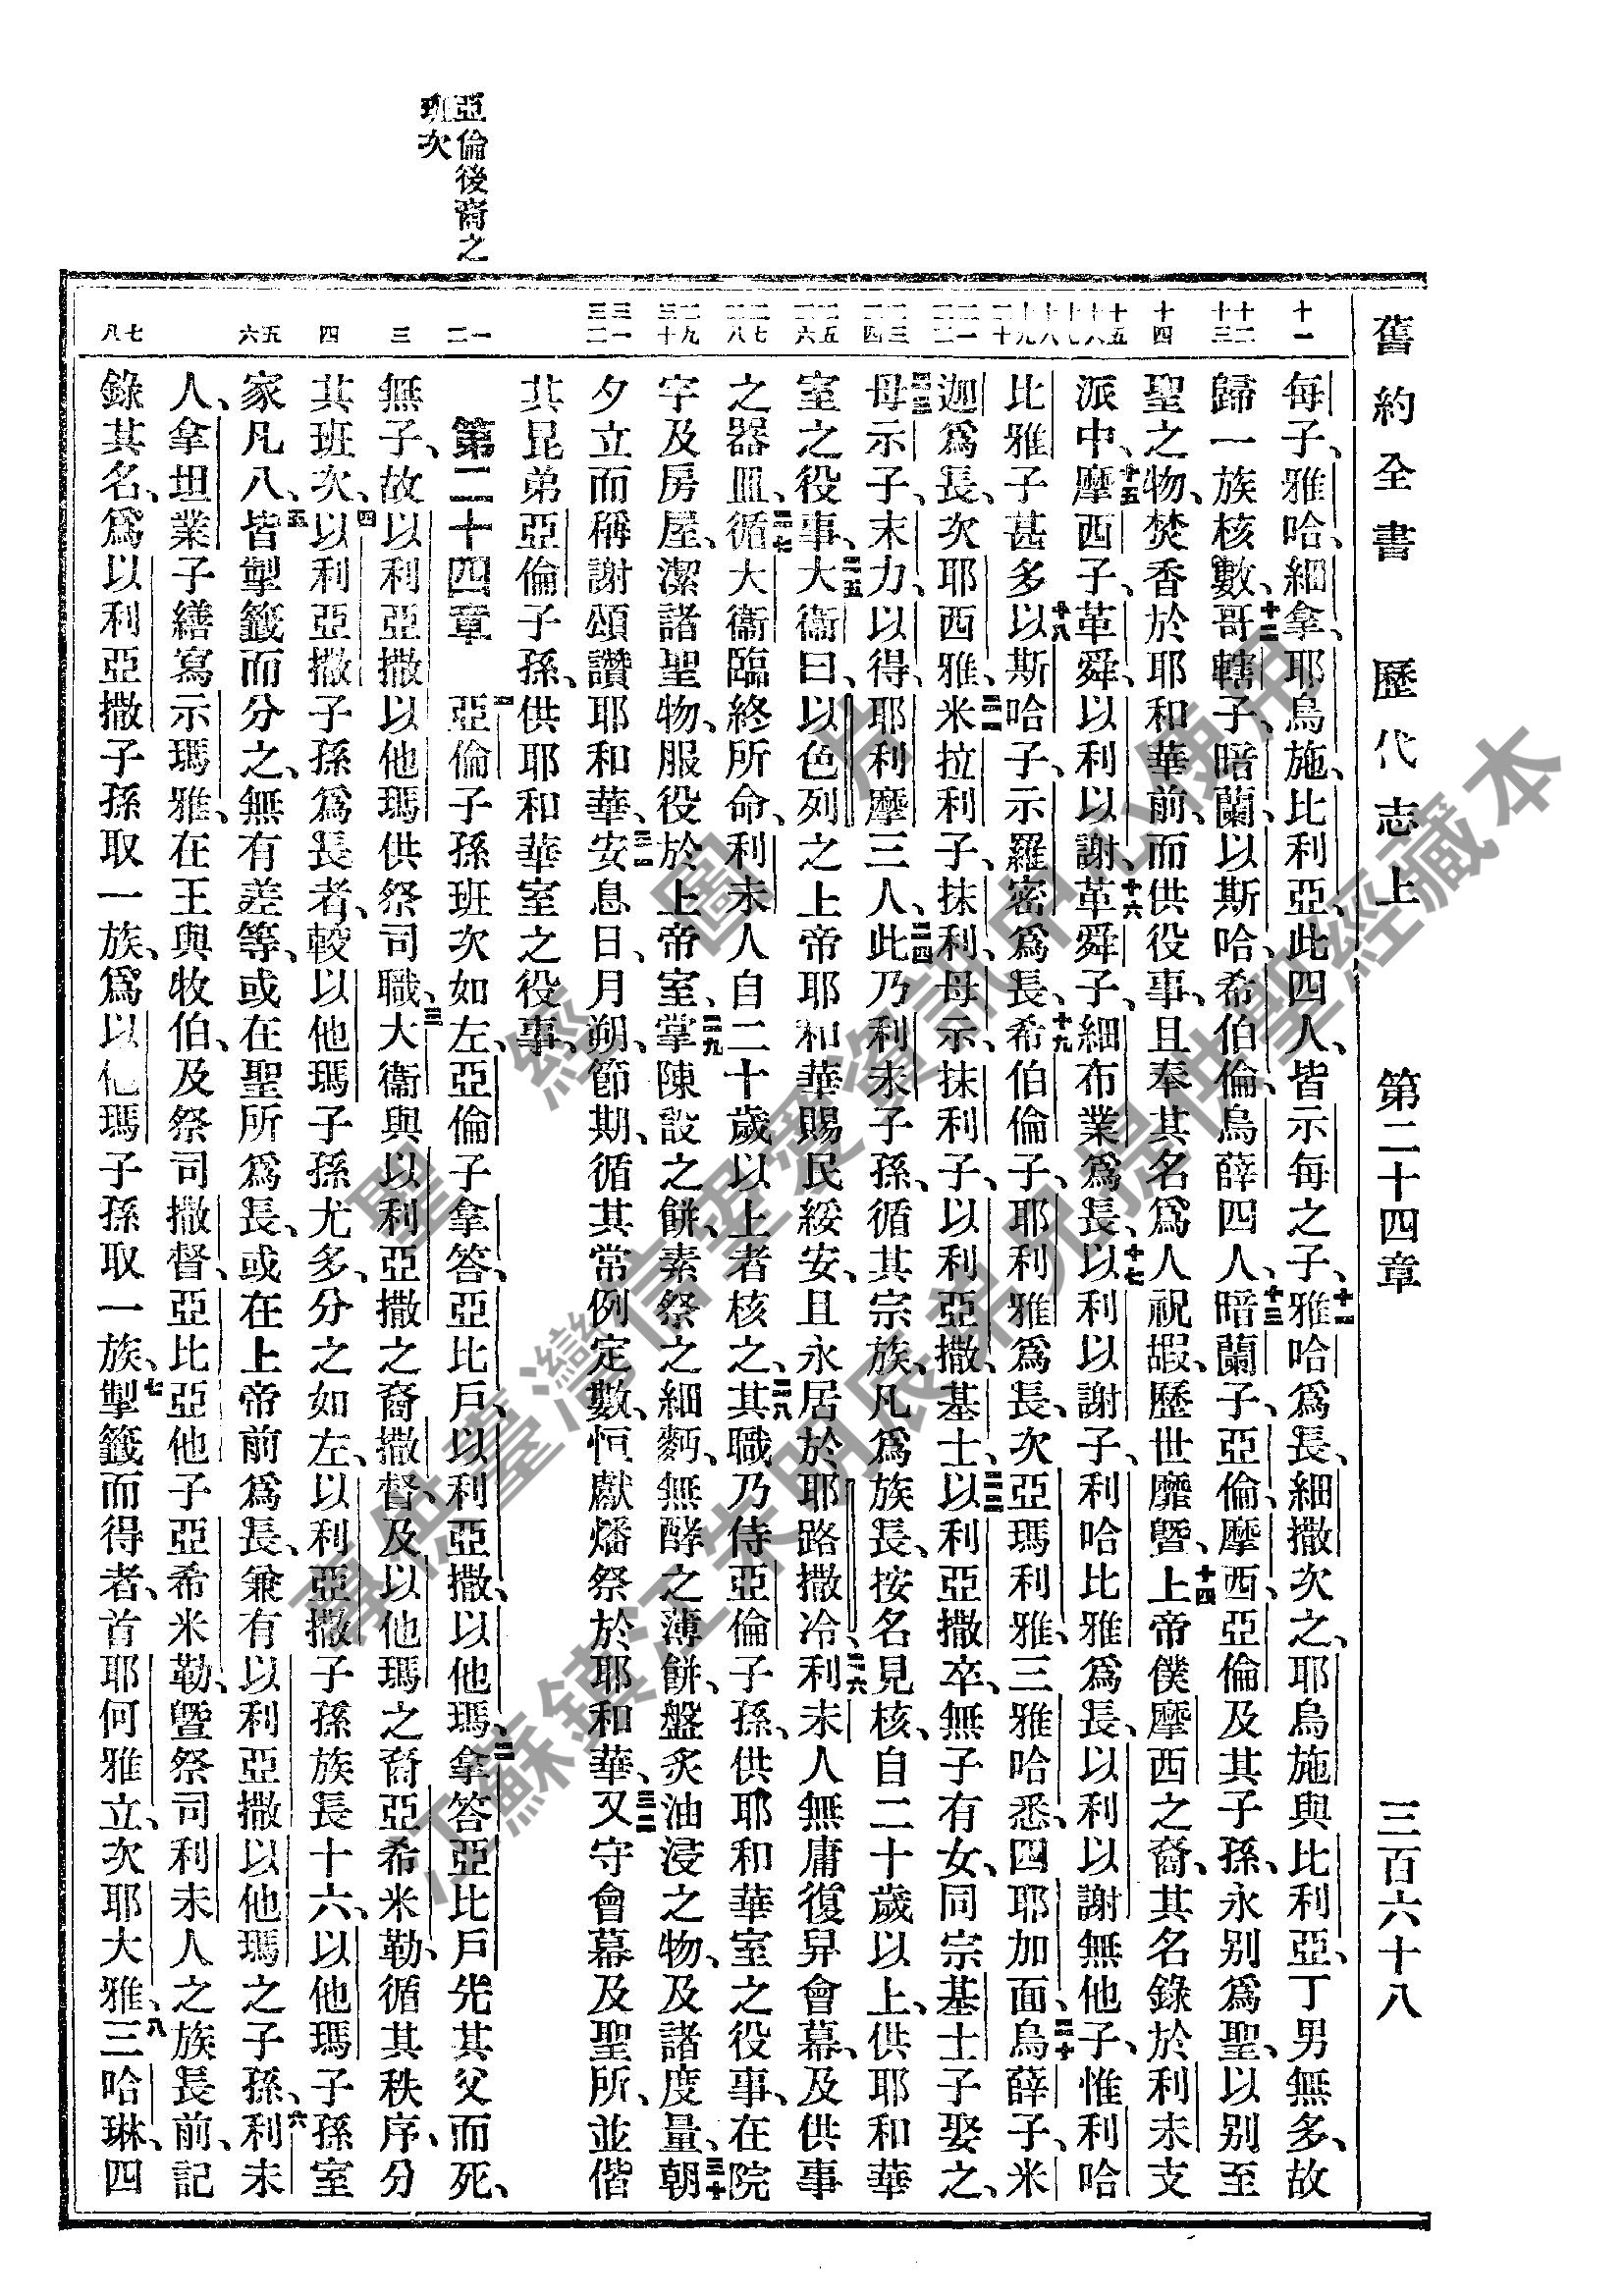 亞倫後裔之
班次
舊約全書　歷代志上　第二十四章　三百六十八
十一
十二 十三
十四
十五 十六 十七
十八 十九 二十
二一 二二
二三 二四
二五 二六
二七 二八
二九 三十
三一 三二
一 二
三
四
五 六
七 八
每子、雅哈、細拿、耶烏施、比利亞、此四人、皆示每之子、十一雅哈爲長、細撒次之、耶烏施與比利亞、丁男無多、故
歸一族核數、十二哥轄子、暗蘭、以斯哈、希伯倫、烏薛四人、十三暗蘭子、亞倫、摩西、亞倫及其子孫、永別爲聖、以別至
聖之物、焚香於耶和華前、而供役事、且奉其名爲人祝嘏、歷世靡曁、十四上帝僕摩西之裔、其名錄於利未支
派中、十五摩西子、革舜、以利以謝、十六革舜子、細布業爲長、十七以利以謝子、利哈比雅爲長、以利以謝無他子、惟利哈
比雅子甚多、十八以斯哈子、示羅密爲長、十九希伯倫子、耶利雅爲長、次亞瑪利雅、三雅哈悉、四耶加面、二十烏薛子、米
迦爲長、次耶西雅、二一米拉利子、抹利、母示、抹利子、以利亞撒、基士、二二以利亞撒卒、無子有女、同宗基士子娶之、
二三母示子、末力、以得、耶利摩三人、二四此乃利未子孫、循其宗族、凡爲族長、按名見核、自二十歲以上、供耶和華
室之役事、二五大衞曰、以色列之上帝耶和華賜民綏安、且永居於耶路撒冷、二六利未人無庸復舁會幕、及供事
之器皿、二七循大衞臨終所命、利未人自二十歲以上者核之、二八其職乃侍亞倫子孫、供耶和華室之役事、在院
宇及房屋、潔諸聖物、服役於上帝室、二九掌陳設之餅、素祭之細麪、無酵之薄餅、盤炙油浸之物、及諸度量、三十朝
夕立而稱謝頌讚耶和華、三一安息日、月朔、節期、循其常例定數、恒獻燔祭於耶和華、三二又守會幕及聖所、並偕
其昆弟亞倫子孫、供耶和華室之役事、
第二十四章　一亞倫子孫班次如左、亞倫子拿答、亞比戶、以利亞撒、以他瑪、二拿答亞比戶先其父而死、
無子、故以利亞撒以他瑪供祭司職、三大衞與以利亞撒之裔撒督、及以他瑪之裔亞希米勒、循其秩序、分
其班次、四以利亞撒子孫爲長者、較以他瑪子孫尤多、分之如左、以利亞撒子孫族長十六、以他瑪子孫室
家凡八、五皆掣籤而分之、無有差等、或在聖所爲長、或在上帝前爲長、兼有以利亞撒以他瑪之子孫、六利未
人、拿坦業子繕寫示瑪雅、在王與牧伯、及祭司撒督、亞比亞他子亞希米勒、曁祭司利未人之族長前、記
錄其名、爲以利亞撒子孫取一族、爲以他瑪子孫取一族、七掣籤而得者、首耶何雅立、次耶大雅、八三哈琳、四
聖經圖片
專供臺灣信望愛資訊中心使用
江蘇鎮江朱明辰弟兄提供聖經藏本